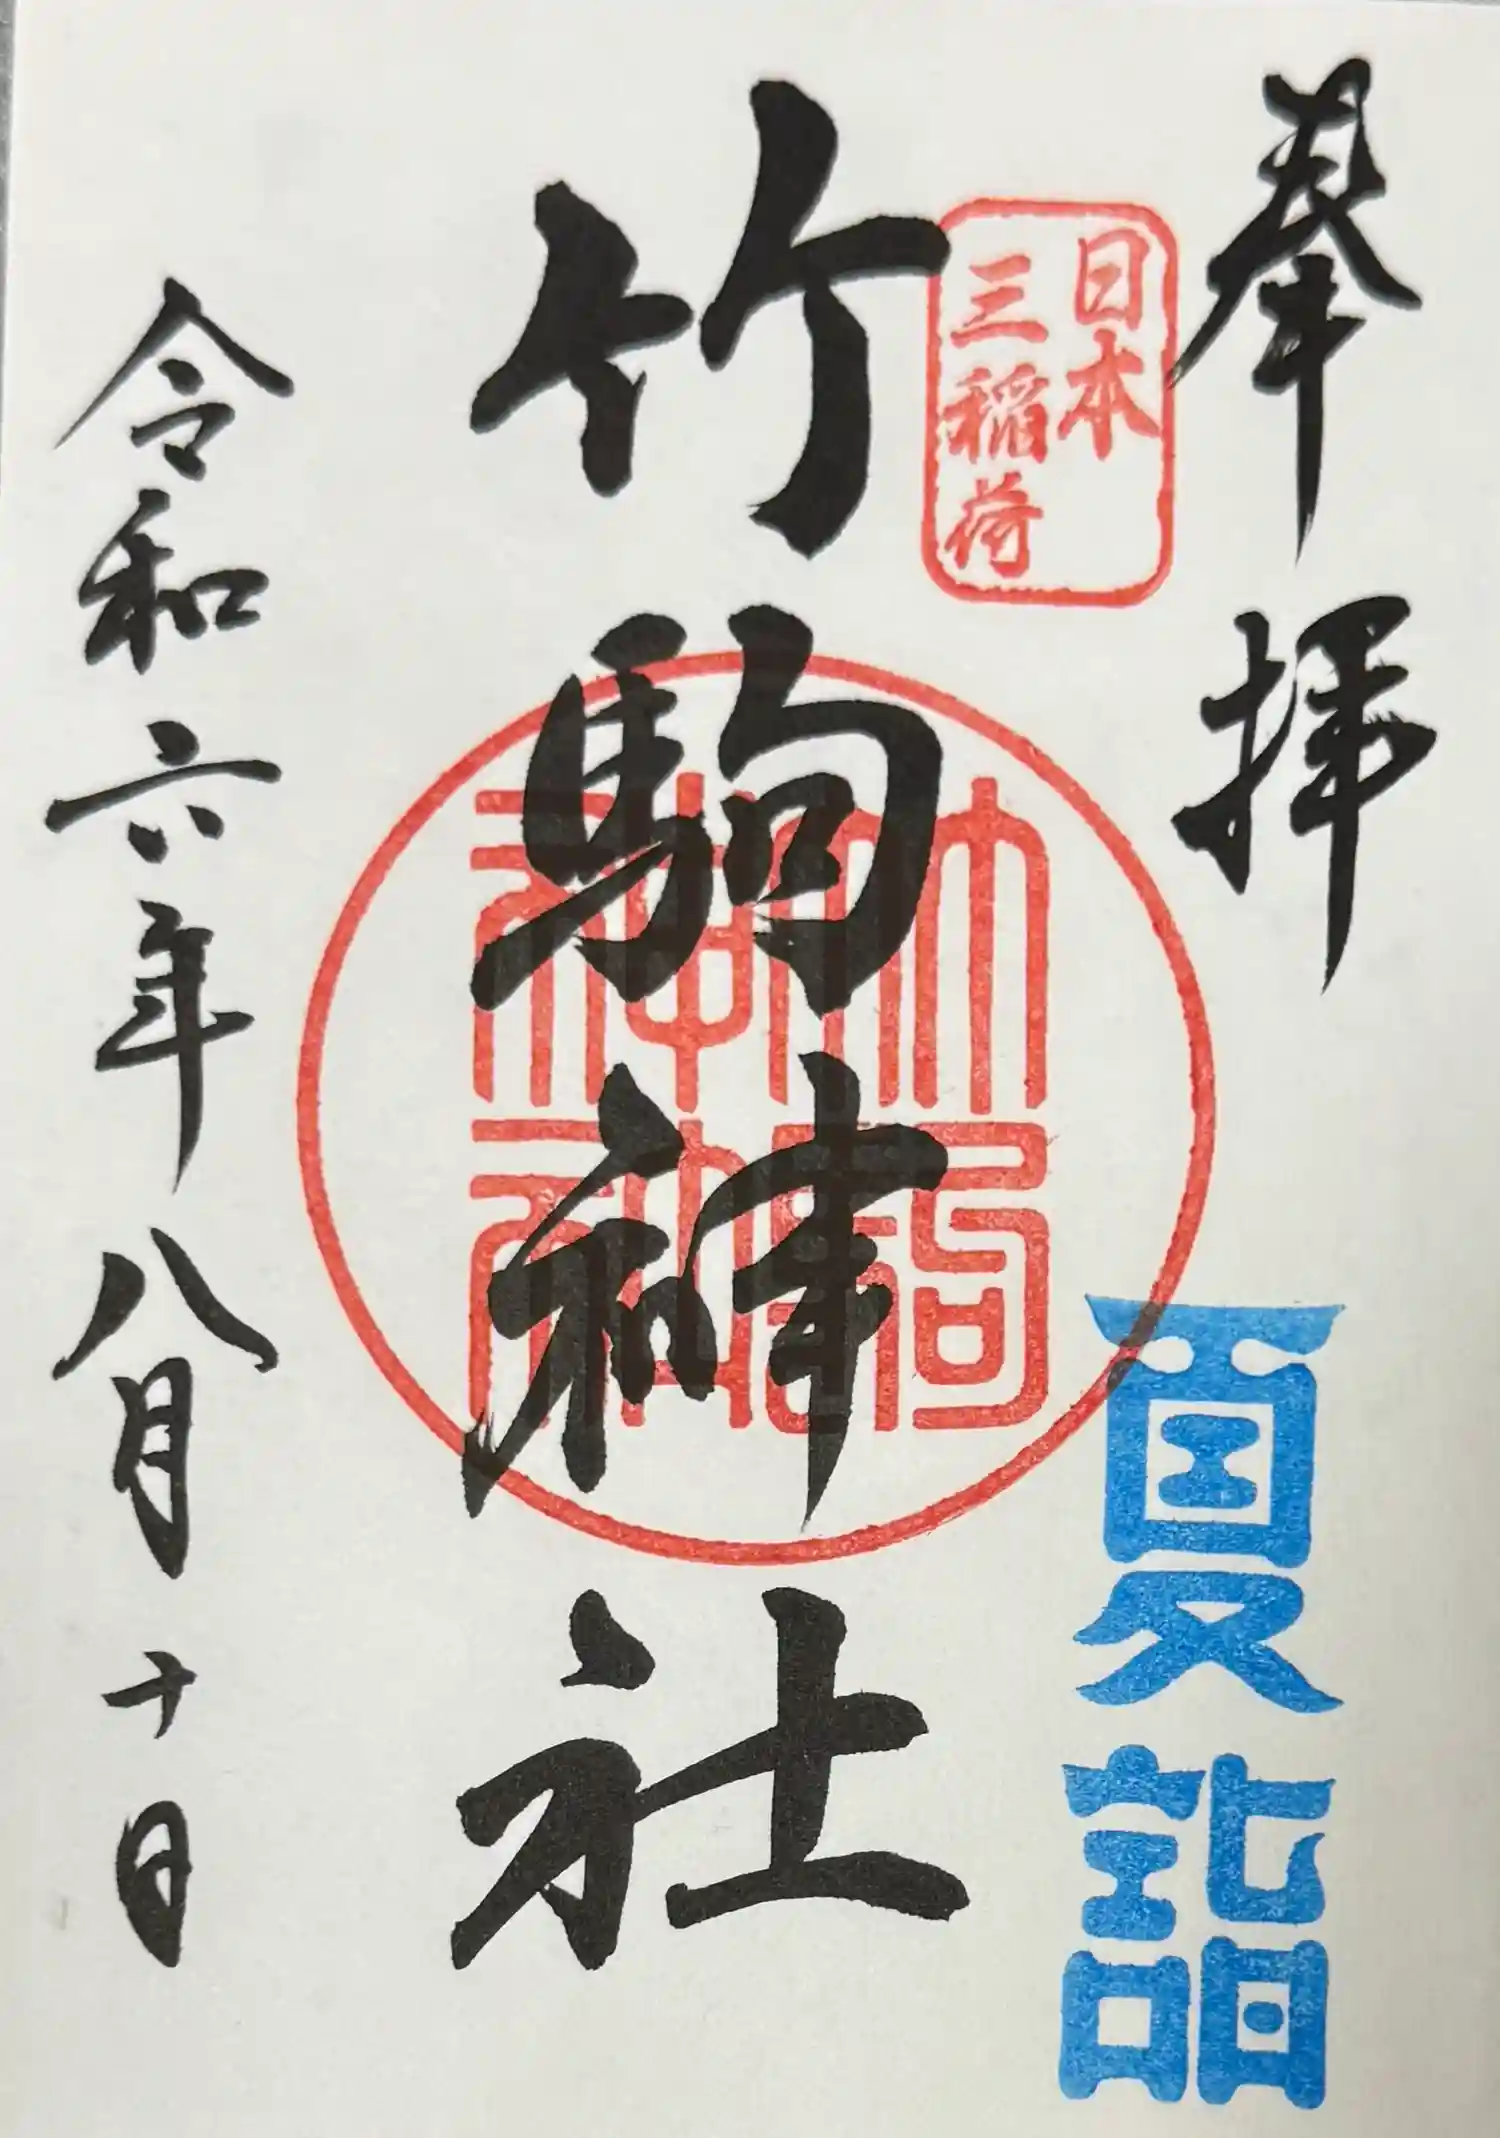 奉拝
日本
三稲荷
夏詣
竹駒神社
竹駒
神社
令和六年八月十日